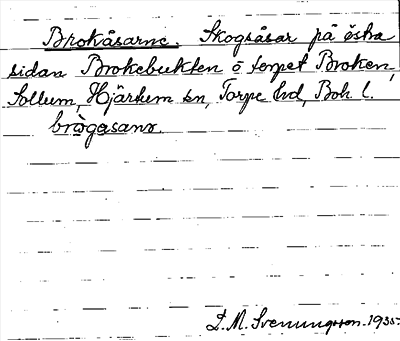 Brokåsarne. Skogsåsar på östra
sidan Brokebukten o torpet Broken,
Sollum, Hjärtum sn, Torpe hd, Boh. l.
brògasanə.
D. M. Svenungsson. 1935.